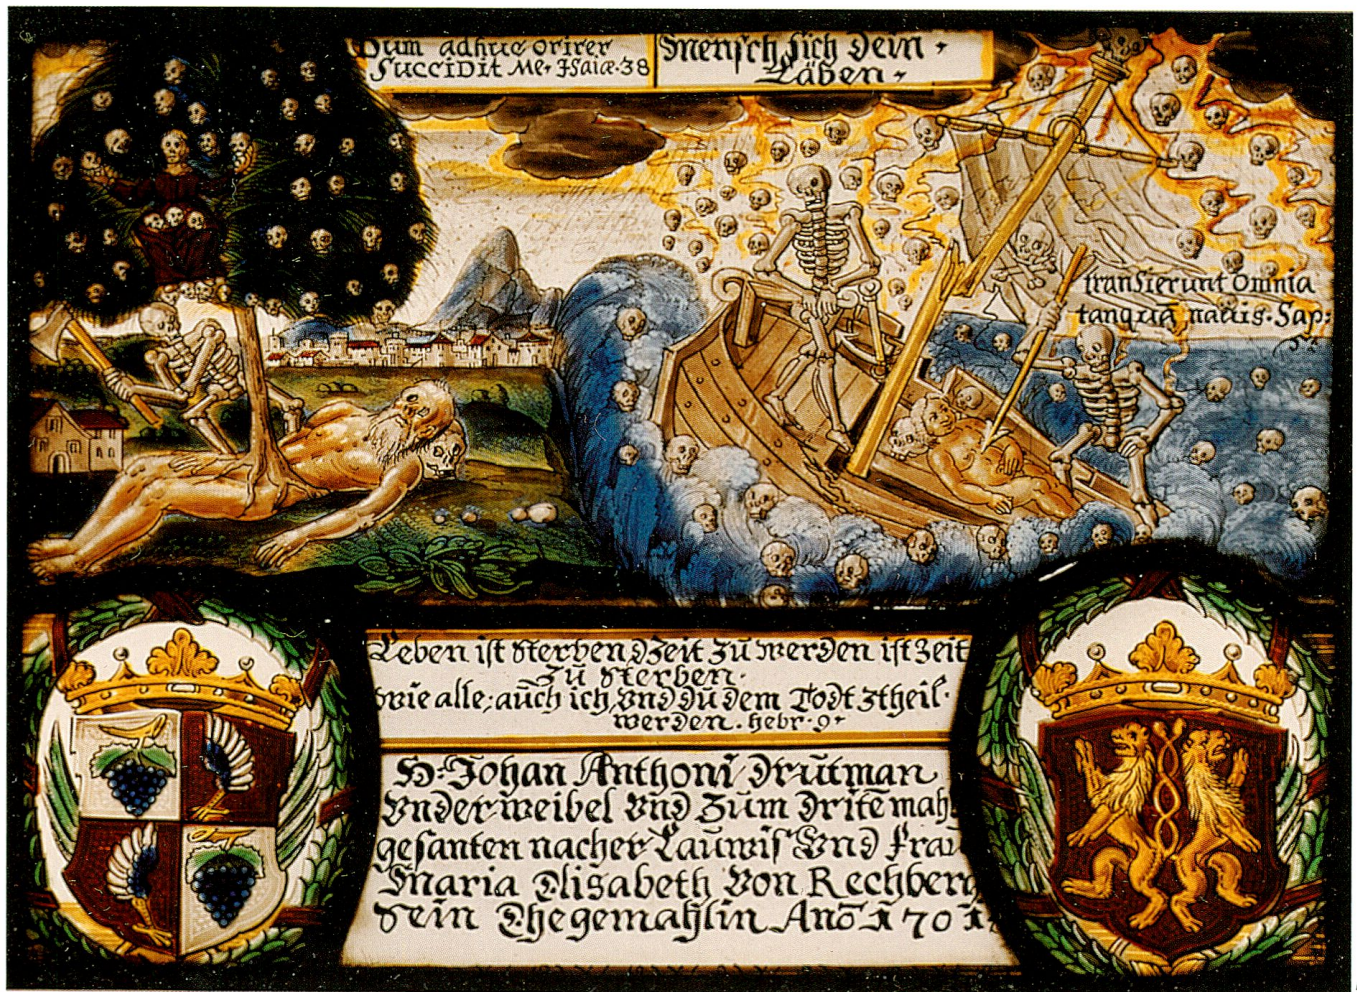 Dum adhuc orirer
succidit Me, Isaiæ.38
Mensch sich Dein
Läben.
transierunt Omnia
tanquā nauis. Sap:
Leben ist sterben, Zeit zū werden ist Zeit
Zū sterben.
wie alle, aūch ich, Vnd dū dem Todt Ztheil.
werden. hebr. 9.
H. Johan Anthoni Drūtman
Vnderweibel Vnd Zūm Dritē mahl
gesanten nacher Lauwis Vnd Fraū
Maria Elisabeth Von Rechberg
Sein Ehegemahlin Anō 1701.